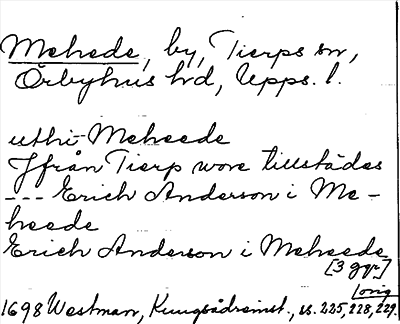 Mehede, by, Tierps sn,
Örbyhus hd, Upps. l.
uthi Meheede
Jfrån Tierp wore tillstädes
--- Erich Anderson i Me-
heede
Erich Anderson i Meheede
[3 ggr]
lorig
1698 Westman, Kungsådreinst., s. 225, 228, 229.